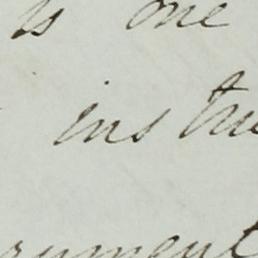 is one
instru
rument